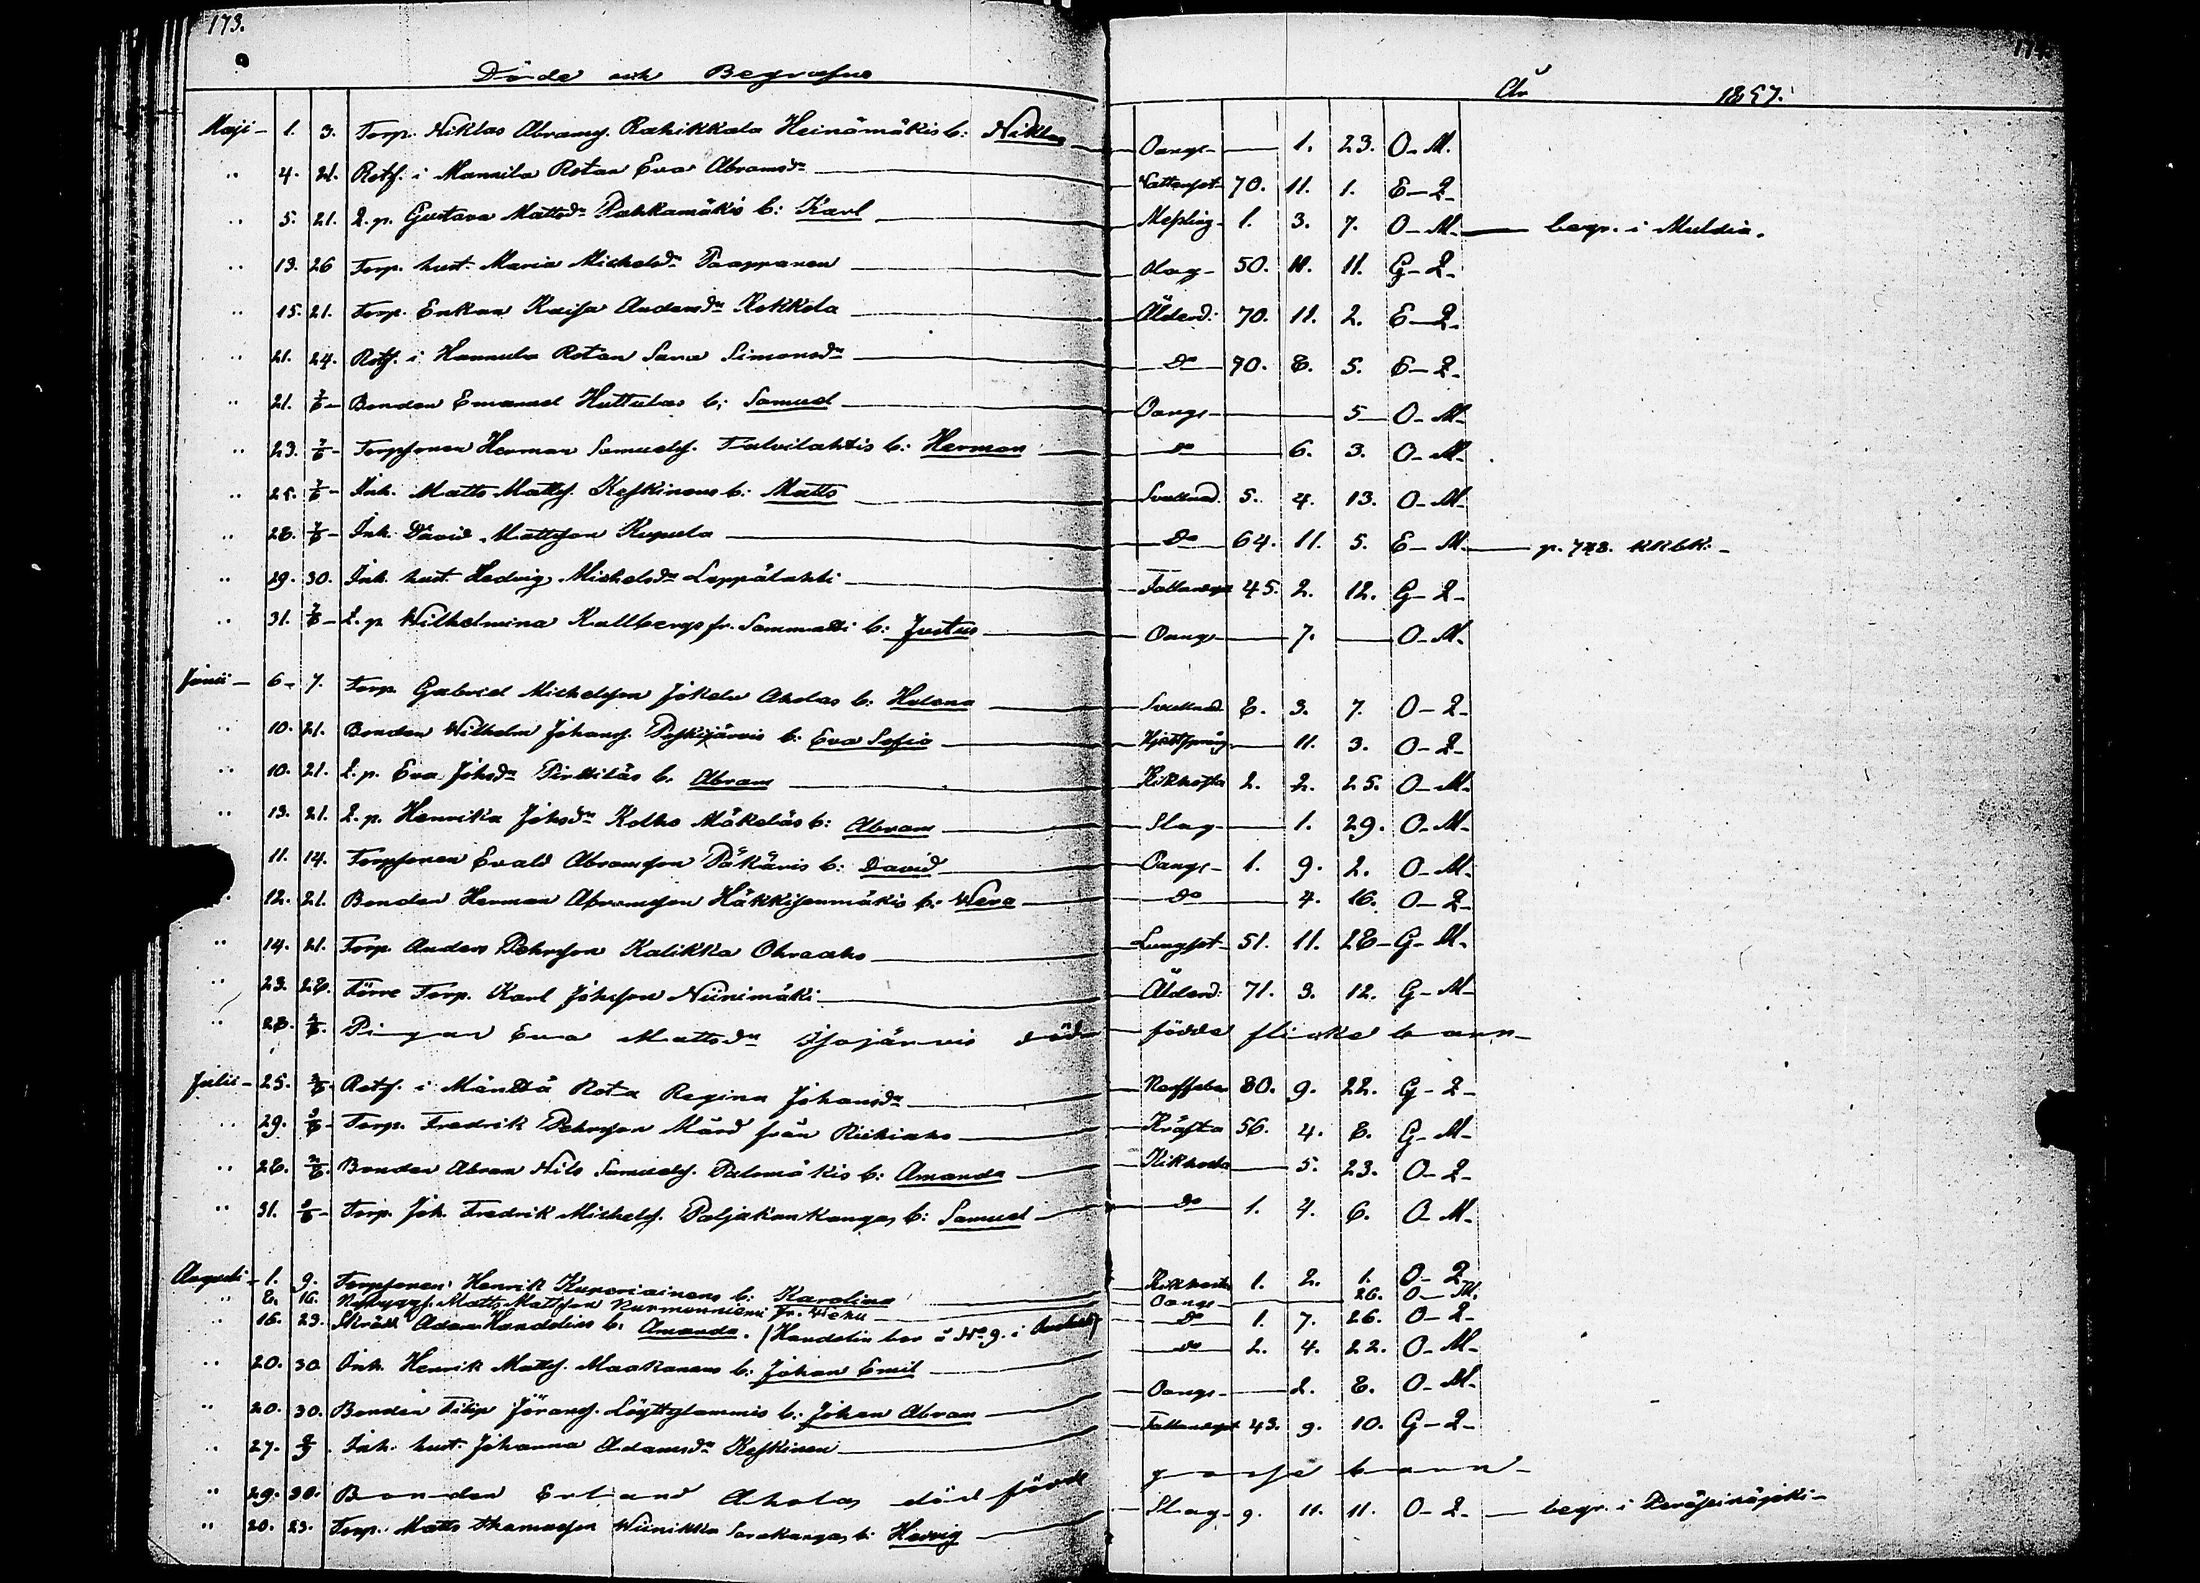 173.
Döde och Begrafne
År 1897.
Maji - 1. 3. Torp. Niklas Abramss. Rahikkala Heinämäkis b: Niklas - Oange - 1. 23. O - M.
" 4. 21. Rotf. i Mannila Rotan Eva Abramsdr - Vattensot - 70. 11. 1. E - Q -
" 5. 21. L. p. Gustava Mattsdr Pahkamäkis b: Karl - Messling - 1. 3. 7. O - M. - begr. i Multia.
" 13. 26 Torp. hust. Maria Michelsdr Paappanen - Slag - 50. 11. 11. G - Q -
" 15. 21. Torp. Enkan Kaisa Andersdr Kokkola - Ålderd: 70. 11. 2. E - Q -
" 21. 24. Rotf. i Hannula Rotan Sara Simonsdr - do - 70. 8. 5. E - Q -
" 21. 7/6 - Bonden Emanuel Huttulas b; Samuel - Oange - 5 - O - M -
" 23. 7/6 - Torpsonen Herman Samuelss. Talvilahtis b: Herman - do - 6. 3. O - M -
" 25. 7/6 - Inh. Matts Mattss. Keskinens b: Matts - Svullnad. 5. 4. 13. O - M -
" 28. 7/6 - Inh. David Mattsson Kupula - do - 64. 11. 5. E - M - p. 748. KKbk. -
" 29. 30. Inh. hust. Hedvig Michelsdr Leppälahti - Fallandsot 45. 2. 12. G - Q -
" 31. 7/6 - L. p. Wilhelmina Kallbergs fr. Sammatti b: Justus - Oange - 7. - O - M.
Junii - 6 - 7. Torp. Gabriel Michelsson Jokela Aholas b: Helena - Svullnad 8. 3. 7. O - Q -
" 10. 21. Bonden Wilhelm Johanss. Poskijärvis b: Eva Sofia - 11. 3. O - Q -
" 10. 21. L. p. Eva Johsdr Pirttiläs b. Abram - Kikhosta 2. 2. 25. O - M.
" 13. 21. L. p. Henrika Johsdr Kolho Mäkeläs b: Abram - Slag - 1. 29. O - M -
11. 14. Torpsonen Evald Abramsson Päkäris b: David - Oange - 1. 9. 2. O - M -
" 12. 21. Bonden Herman Abramsson Häkkisenmäkis b: Wera - do - 4. 16. O - Q -
" 14. 21. Torp Anders Pehrsson Kalikka Ohraaho - Lungsot - 51. 11. 28 - G - M.
" 23. 28. Förre Torp. Karl Johsson Niinimäki - Ålderd: 71. 3. 12. G - M -
" 28. Pigan Eva Mattsdr Isojärvis död - födde flicke barn -
Julii - 25. Rotf. i Mänttä Rota Regina Johansdr - 80. 9. 22. G - Q -
" 29. Torp. Fredrik Pehrsson Mård från Riihiaho - Kräfta 56. 4. 8. G - M -
" 28. Bonden Abram Nils Samuelss. Palomäkis b: Amanda - Kikhosta - 5. 23. O - Q -
" 31. Torp. Joh. Fredrik Michelss. Paljakankangas b: Samuel - do - 1. 4. 6. O - M -
Augusti - 1. 9. Torpsonen Henrik Kuxoriainens b: Karolina - Kikhosta 1. 2. 1. O - Q
" 8. 16. Nybygg. Matts Mattsson Nurmenniemi fr. Wehu - Oange - 26. O - M.
" 16. 23. Skrädd. Adam Handelins b: Amanda. (Handelin bor å No 9. i - do - 1. 7. 26. O - Q -
" 20. 30. Inh. Henrik Mattss. Maakanens b: Johan Emil - do - 2. 4. 22. O - M -
" 20. 30. Bonden Filip Jöranss. Löyttylammis b: Johan Abram - Oange - 2. 8. O - M -
" 27. 2/9 - Inh. hust. Johanna Adamsdr Keskinen - Fallandsot 43. 9. 10. G - Q -
" 29. 30. Bonden Erland Aholas död född gosse barn -
" 20. 23. Torp. Matts Thomasson Wiinikka Sarakangas b: Hedvig - Slag - 9. 11. 11. O - Q - begr. i Peräseinäjoki -